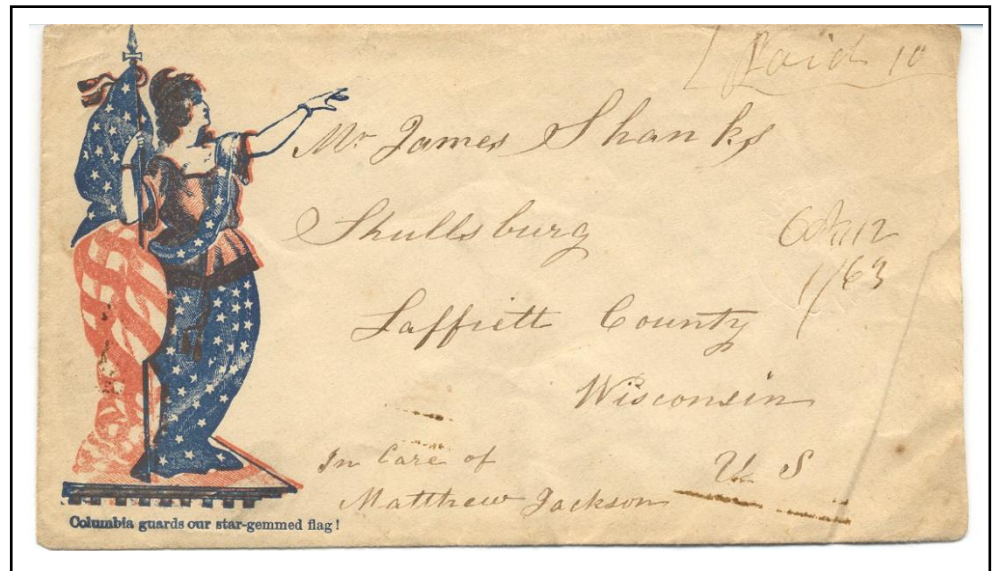 Paid 10
Mr James Shanks
Shullsburg
1/63
Laffiett County
Wisconsin
In Care of
Matthew Jackson
U S
Columbia guards our star-gemmed flag!